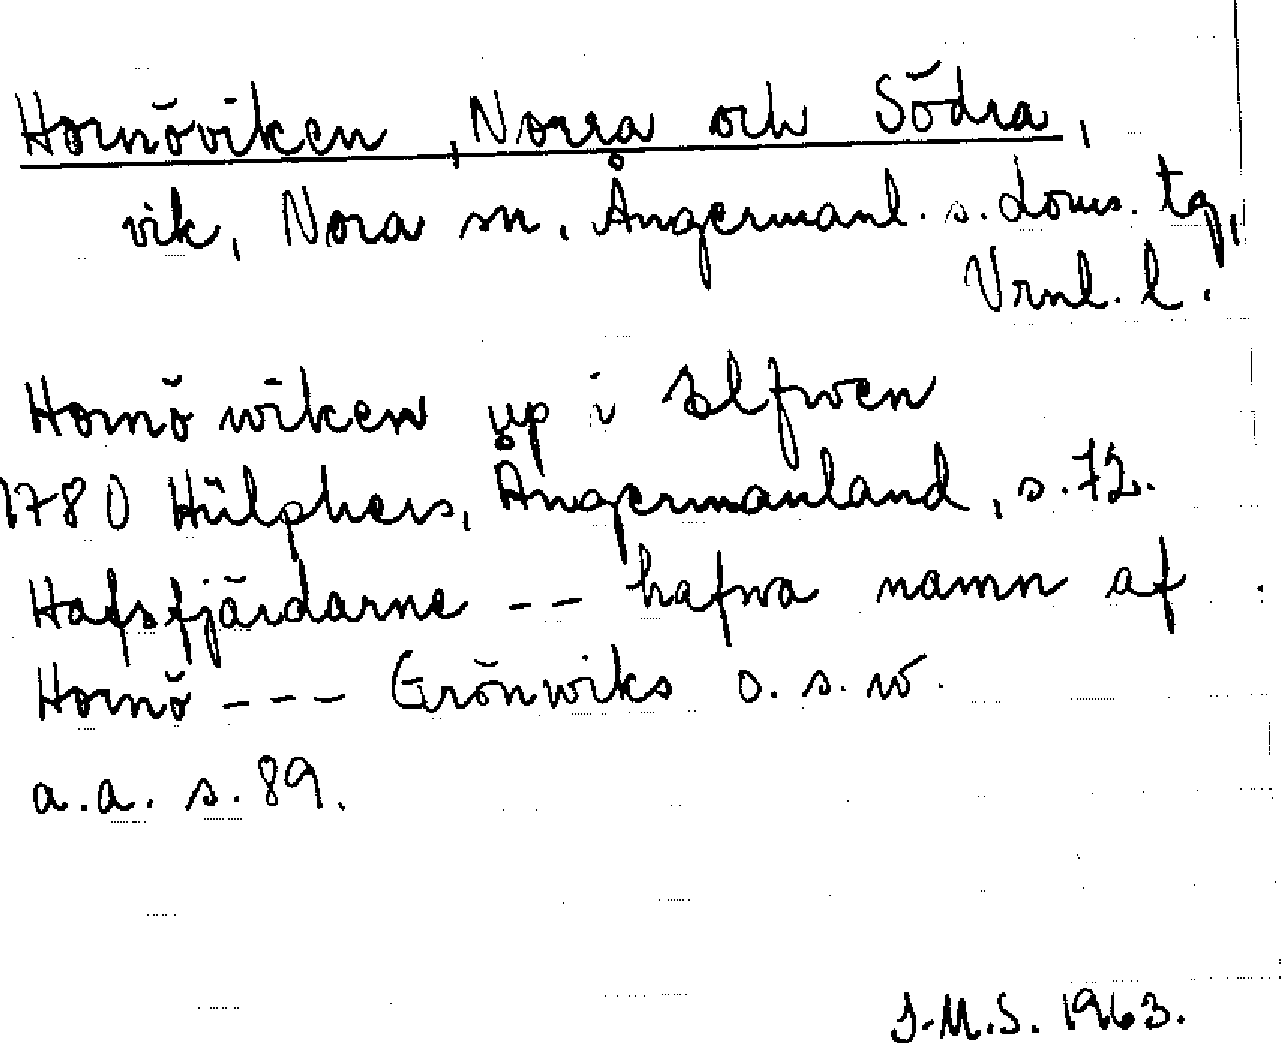 Hornöviken, Norra och Södra,
vik, Nora sn. Ångermanl. s. doms. tg,
Vrnl. l.
Hornö wiken up i Elfwen
1780 Hülphers, Ångermanland, s. 72.
Hafsfjärdarne -- hafwa namn af
Hornö --- Grönwiks o. s. w.
a. a. s. 89.
J.M.S. 1963.